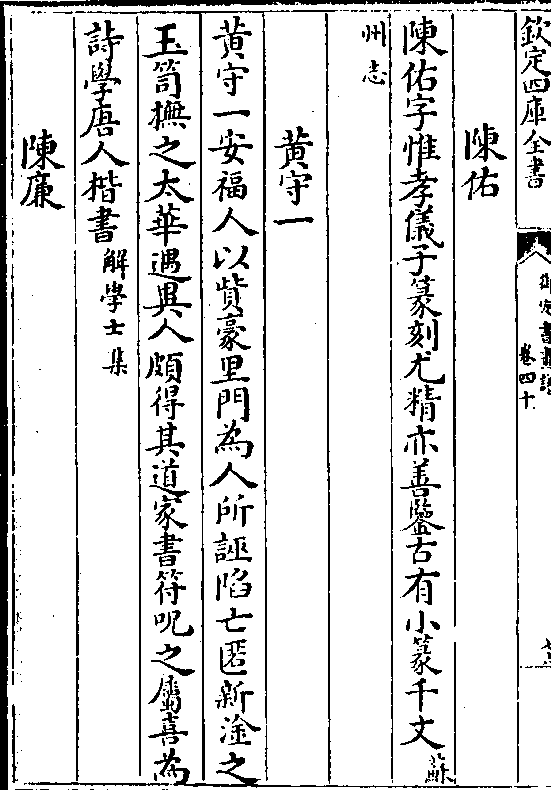 欽定四庫全書
御定書畫譜
卷四十
陳佑
陳佑字惟孝儀子篆刻尤精亦善鑒古有小篆千文蘇
州志
黄守一
黄守一安福人以貲豪里門為人所誣陷亡匿新淦之
玉笥撫之太華遇異人頗得其道家書符呪之屬喜為
詩學唐人楷書解學士集
陳廉